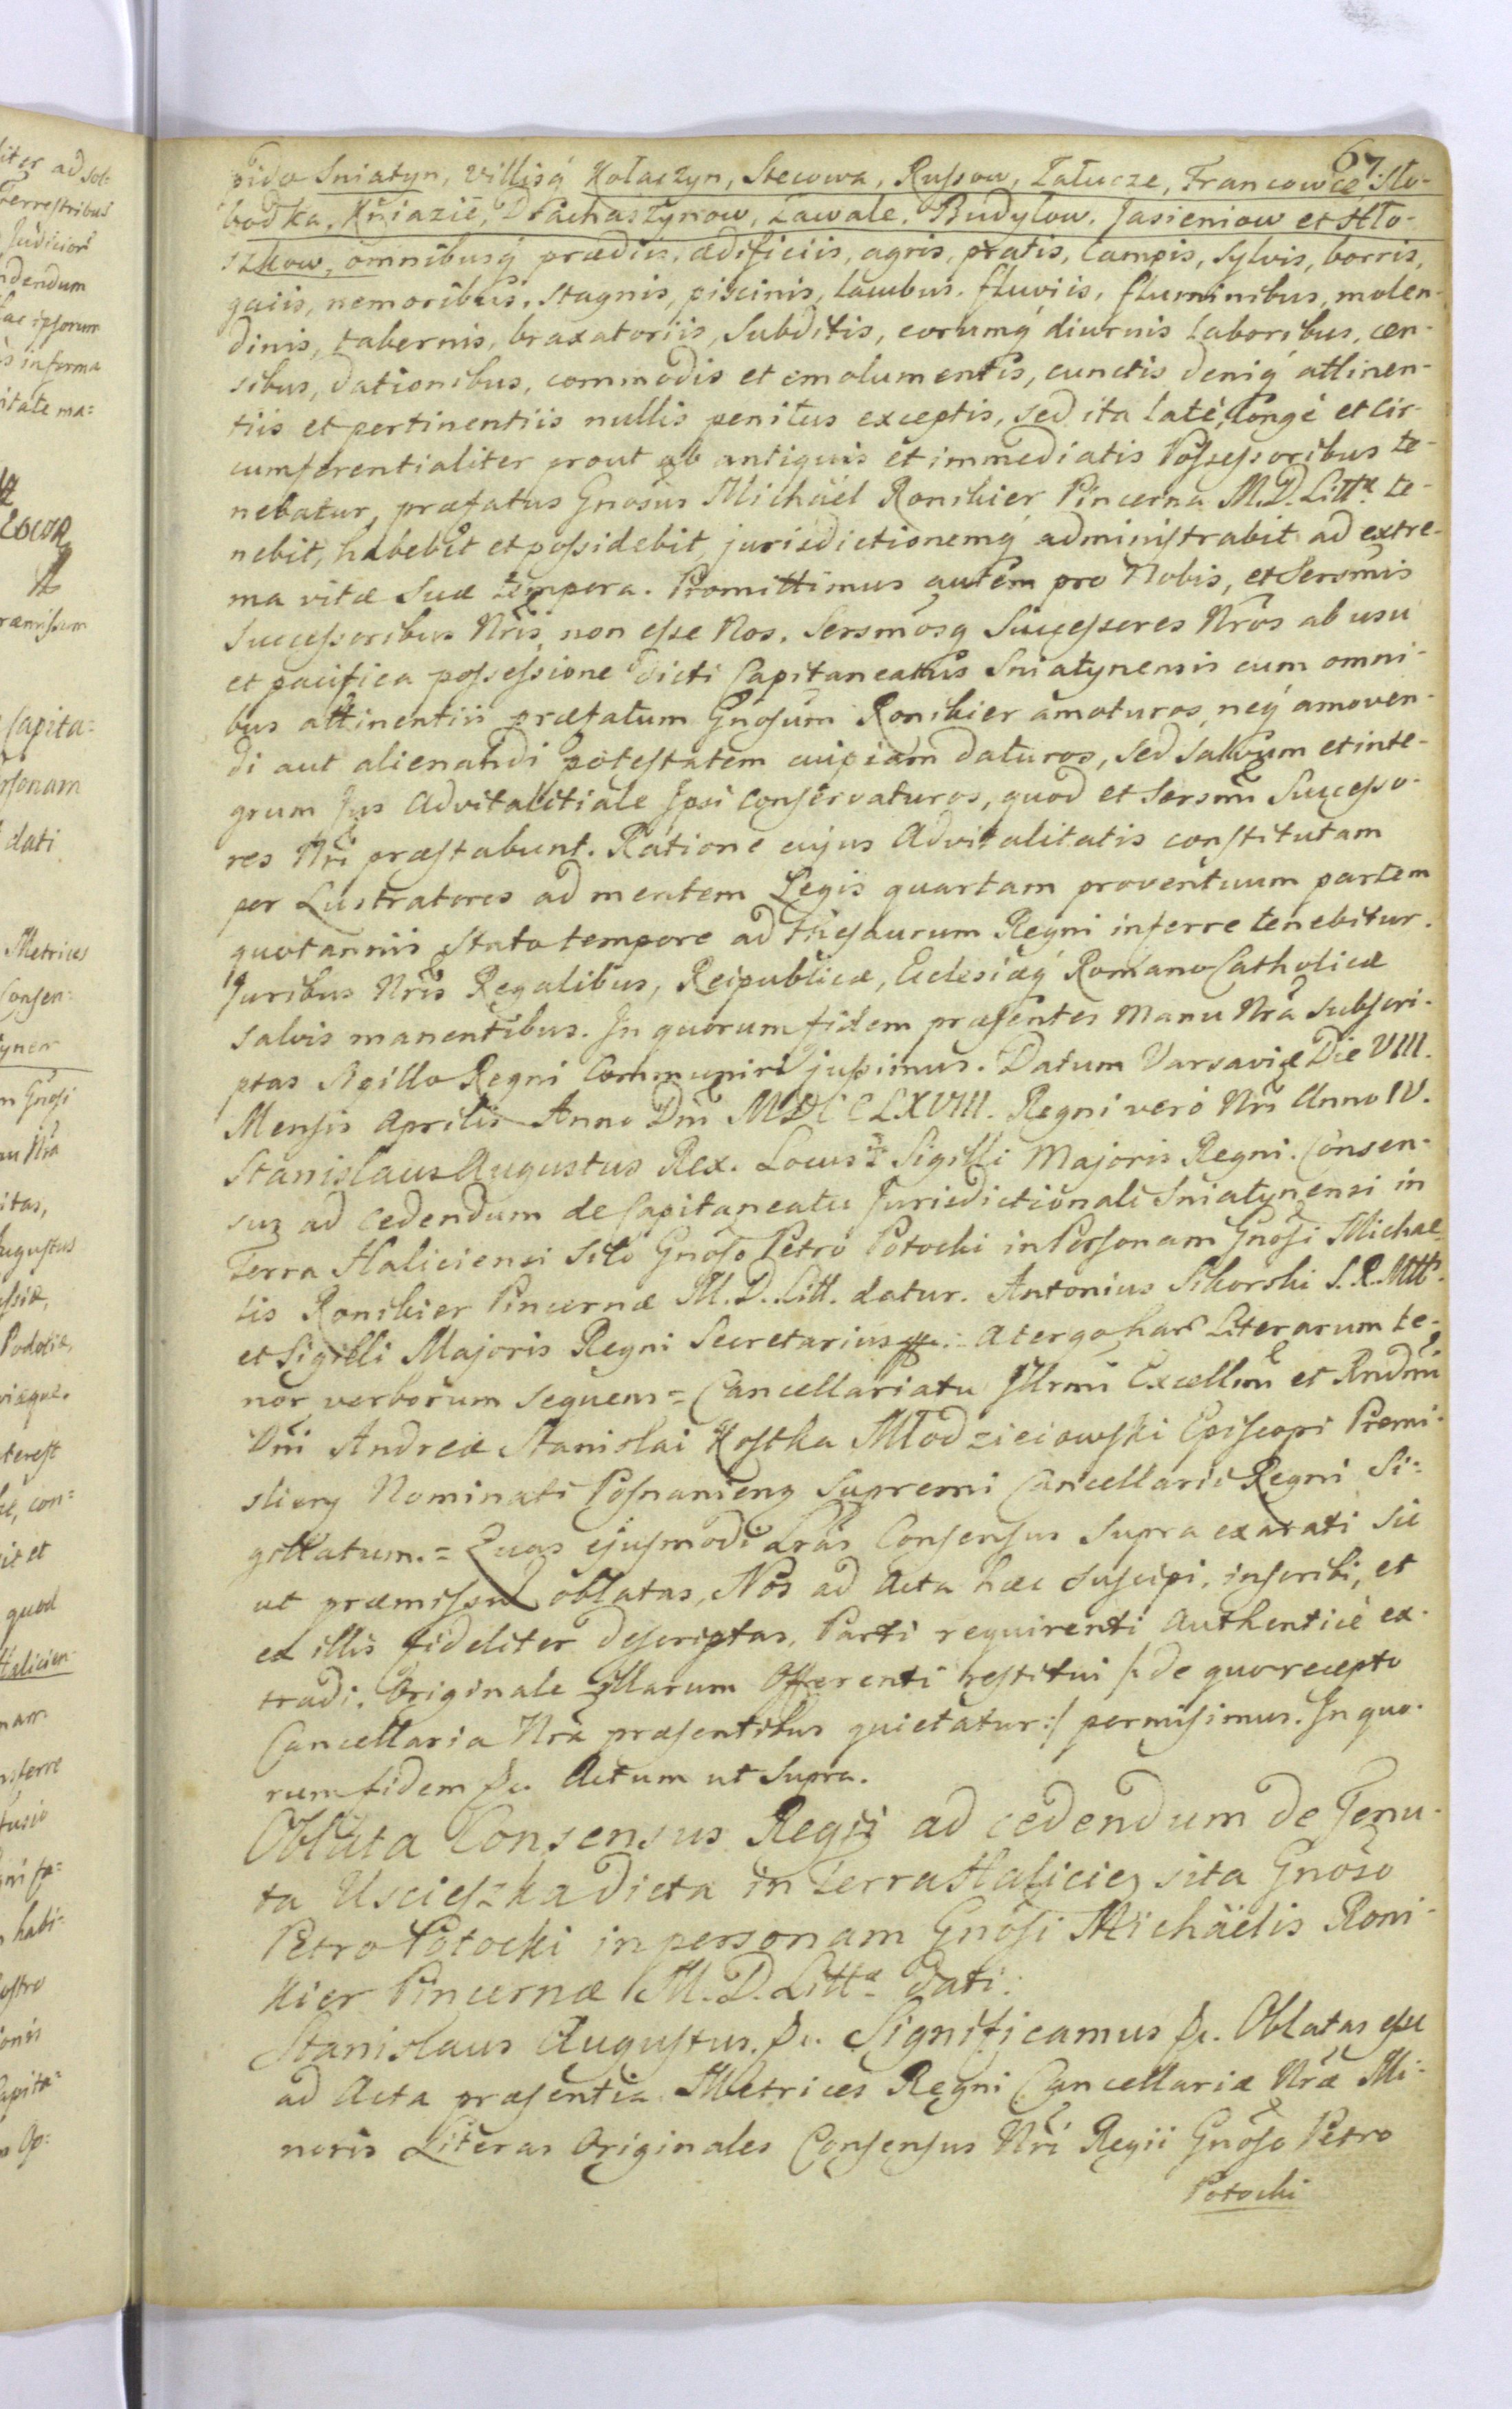 67.
pido Sniatyn, Villisq́ Kołaczyn, Stecowa, Russow, Załucze, Francowce Sło-
bodka, Kniazie, Drachaszynow, Zawale, Budyłow, Jasieniow et Hło-
szkow, omnibusq́ prædiis, ædificiis, agris, pratis, Campis, Sylvis, borris,
gaiis, nemoribus, Stagnis, piscinis, lacubus, fluviis, fluminibus, molen-
dinis, tabernis, braxatoriis, Subditis, eorumq́ diurnis laboribus, cen-
sibus, dationibus, commodis et emolumentis, cunctis deniq́ attinen-
tiis et pertinentiis nullis penitus exceptis, sed ita latè, longè et cir-
cumferentialiter prout ab antiquis et immediatis Possessoribus te-
nebatur, præfatus Gnosus Michäel Ronikier Pincerna M.D. Littæ te-
nebit, habebit et possidebit, jurisdictionemq́ administrabit ad extre-
ma vitæ Suæ tempora. Promittimus autem pro Nobis, et Sersmis
Successoribus Nris, non esse Nos, Sersmosq́ Successores Nros ab usu
et pacifica possessione dicti Capitaneatus Sniatynensis cum omni-
bus attinentiis præfatum Gnosum Ronikier amoturos, neq́ amoven-
di aut alienandi potestatem cuipiam daturos, sed salvum et inte-
grum Jus Advitalitiale Ipsi Conservaturos, quod et Sersmi Successo-
res Nri præstabunt. Ratione cujus Advitalitatis constitutam
per Lustratores ad mentem Legis quartam proventuum partem
quotannis Stato tempore ad thesaurum Regni inferre tenebitur.
Juribus Nris Regalibus, Reipublicæ, Eclesiæq́ Romano Catholicæ
salvis manentibus. In quorum fidem præsentes Manu Nra subscri-
ptas Sigillo Regni Communiri jussimus. Datum Varsaviæ Die VIII.
Mensis Aprilis Anno Dni MDCCLXVIII. Regni verò Nri Anno IV.
Stanislaus Augustus Rex. Locus Sigilli Majoris Regni. Consen-
sus ad cedendum de Capitaneatu Jurisdictionali Sniatynensi in
Terra Haliciensi Sito Gnoso Petro Potocki in Personam Gnosi Michae-
lis Ronikier Pincernæ M.D. Litt. datur. Antonius Sikorski S.R. Mttis
et Sigilli Majoris Regni Secretarius. Atergo har Literarum te-
nor verborum sequens = Cancellariatu Illrmi Excellmi et Rndmi
Dni Andreæ Stanislai Kostka Młodzieiowski Episcopi Premi-
slien Nominati Posnanien Supremi Cancellarii Regni Si-
gillatum. = Quas ejusmodi Lras Consensus supra exarati sic
ut præmissū oblatas, Nos ad Acta hæc suscipi, inscribi, et
ex illis fideliter descriptas, Parti requirenti Authenticè ex-
tradi. Originale illarum Offerenti restitui /: de quo recepto
Cancellaria Nra præsentibus quietatur :/ permisimus. In quo-
rum fidem &c. Actum ut Supra.
Oblata Consensus Regii ad cedendum de Tenu-
ta Uscieszka dicta in Terra Halicien sita Gnoso
Petro Potocki in personam Gnosi Michäelis Roni-
kier Pincernæ M.D. Littæ dati:
Stanislaus Augustus. &c. Significamus &c. Oblatas esse
ad Acta præsentia Metrices Regni Cancellariæ Nræ Mi-
noris Literas Originales Consensus Nri Regii Gnoso Petro
Potocki